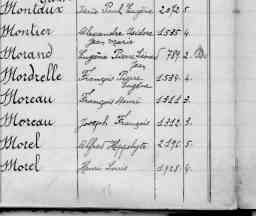 Montaux Paul Eugène 2072 5.
Montier Alexandre Isidore 1535 4.
Jean Marie
Morand Eugène Pierre 789 2.
Jean
Mordrelle François Pierre 1534 4.
Eugène
Moreau François Henri 1111 3.
Moreau Joseph François 1112 3.
Morel Alfred Hippolyte 2196 5.
Morel Henri Louis 1925 4.